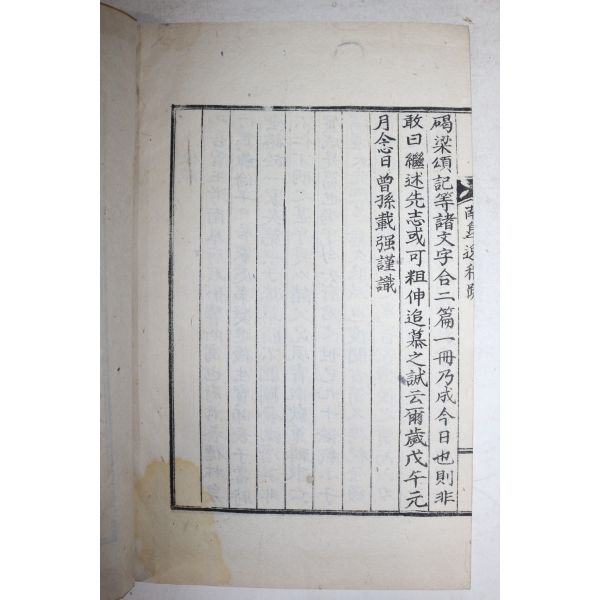 碣梁頌記等諸文字合二篇一冊乃成今日也則非
敢曰繼述先志或可粗伸追慕之誠云爾歲戊午元
月念日曾孫載强謹識